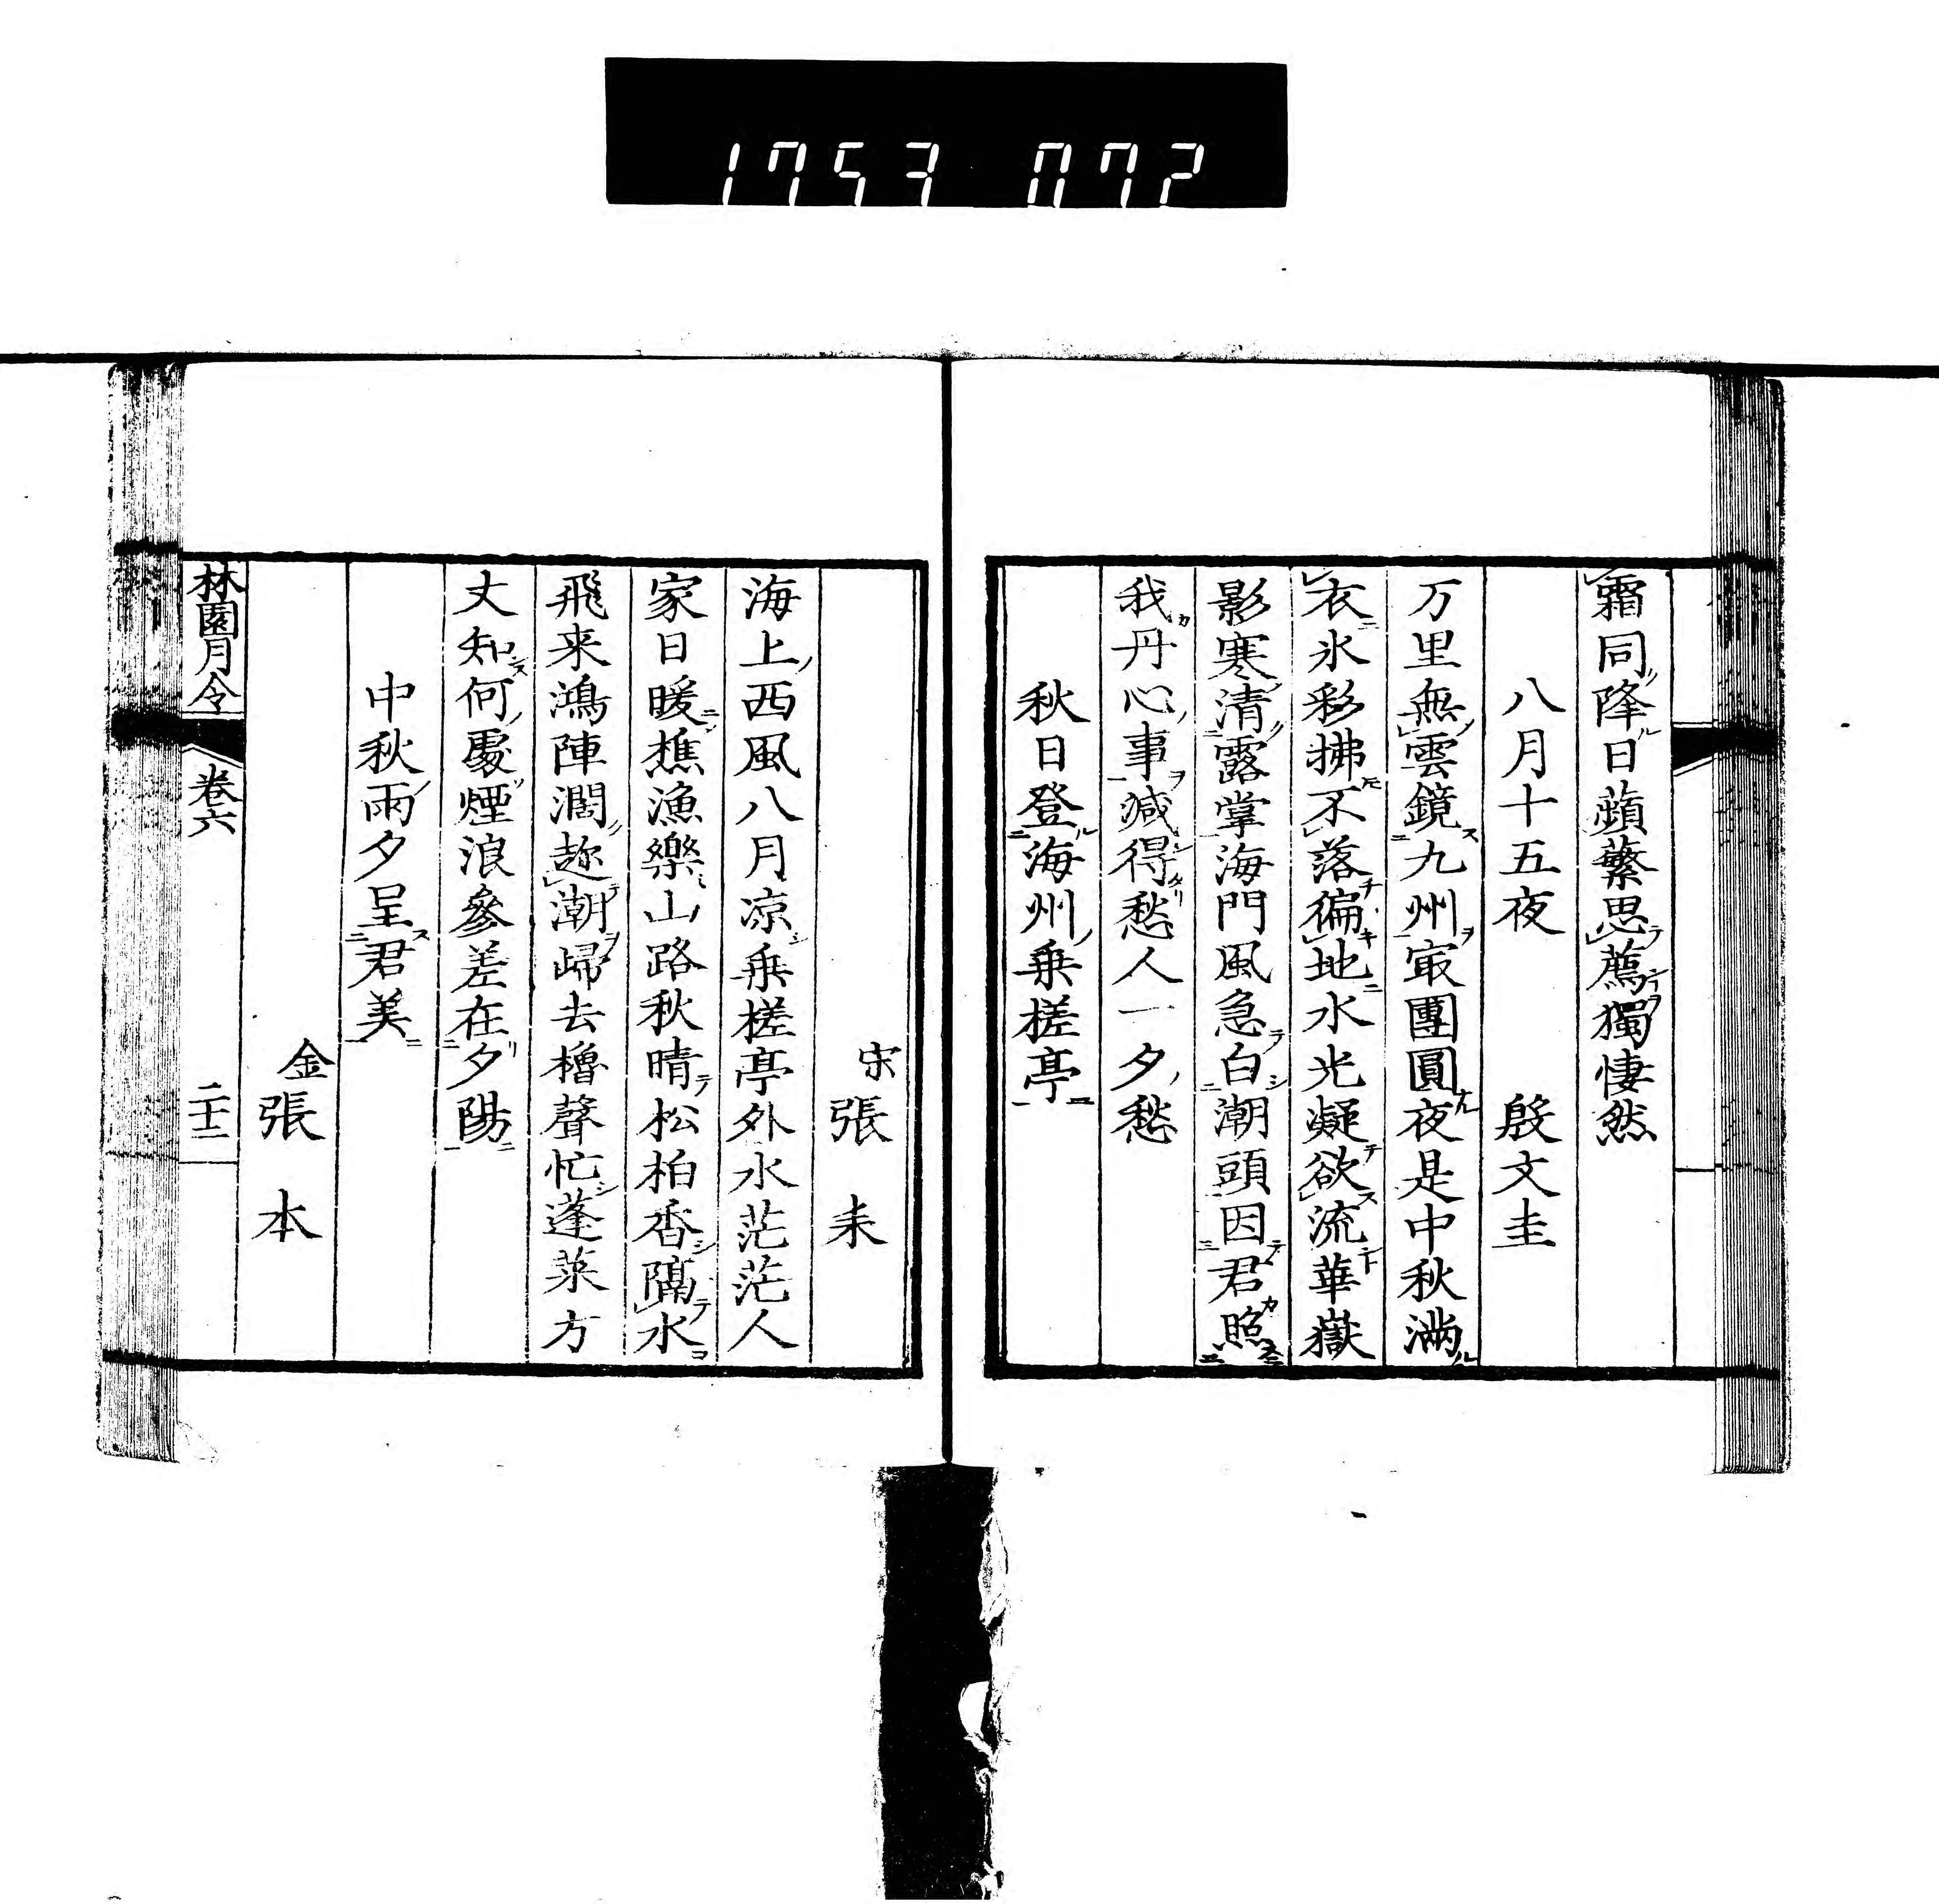 1753 072
霜同降日蘋蘩思薦獨悽然
八月十五夜 殷文圭
万里無雲鏡九州㝡團圓夜是中秋滿
衣氷彩拂不落徧地水光凝欲流華嶽
影寒清露掌海門風急白潮頭因君照
我丹心事減得愁人一夕愁
秋日登海州乗槎亭
宋張 耒
海上西風八月凉乗槎亭外水茫茫人
家日暖樵漁樂山路秋晴松柏香隔水
飛来鴻陣濶趂潮歸去櫓聲忙蓬萊方
丈知何處煙浪參差在夕陽
中秋雨夕呈君美
金張 本
林園月令 卷六 二十二